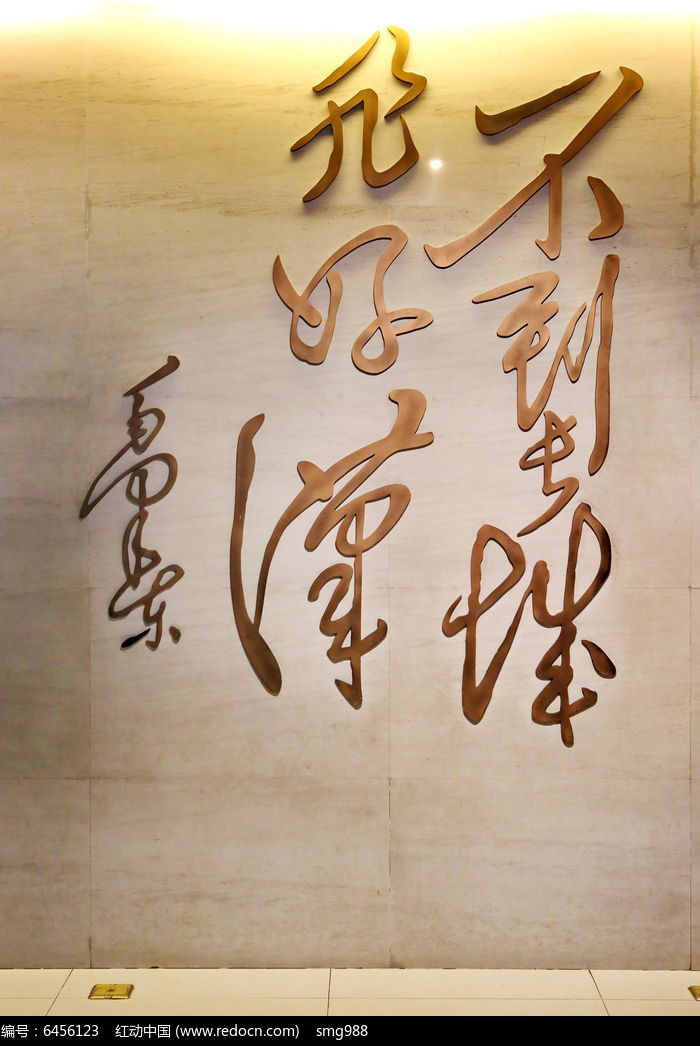 不到长城
非好汉
毛泽东
编号：6456123 红动中国 (www.redocn.com) smg988